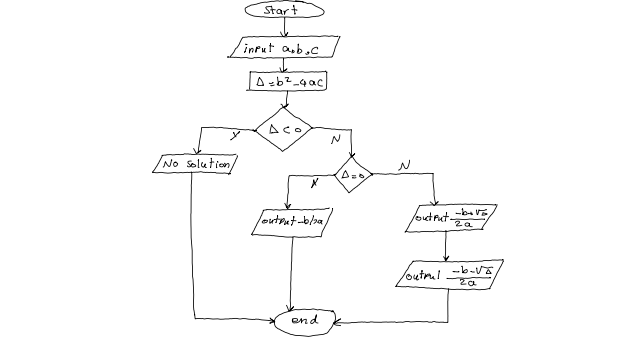 Start
input a,b,c
Δ=b²-4ac
Δ<0
Y
N
No solution
Δ=0
Y
N
output -b/2a
output -b+√Δ
2a
output -b-√Δ
2a
end